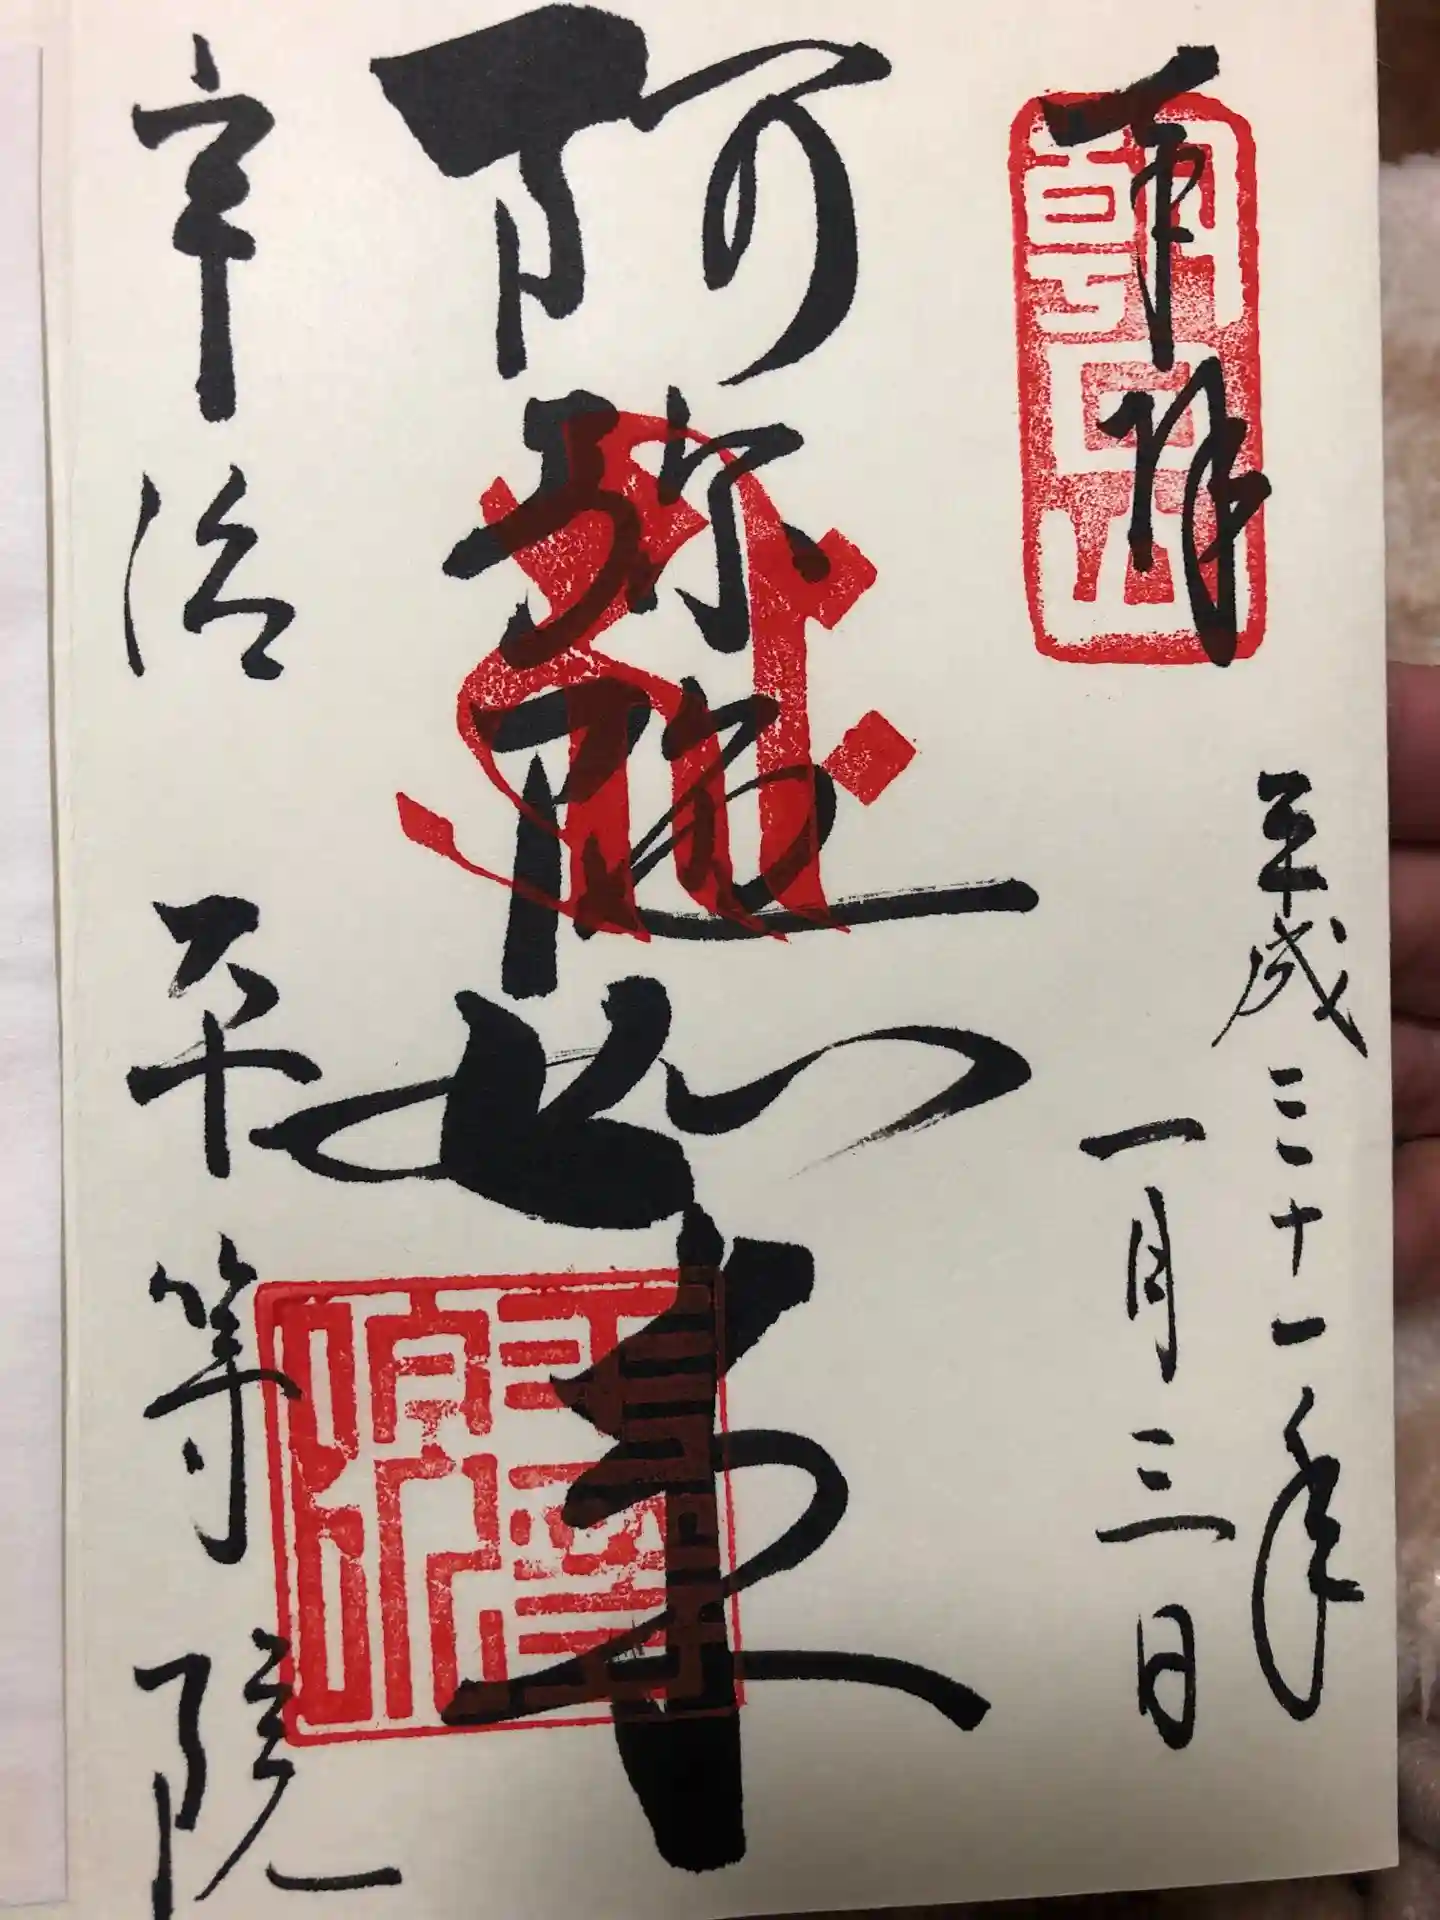 奉拝
朝日山
平成三十一年
一月三日
阿弥陀如来
宇治 平等院